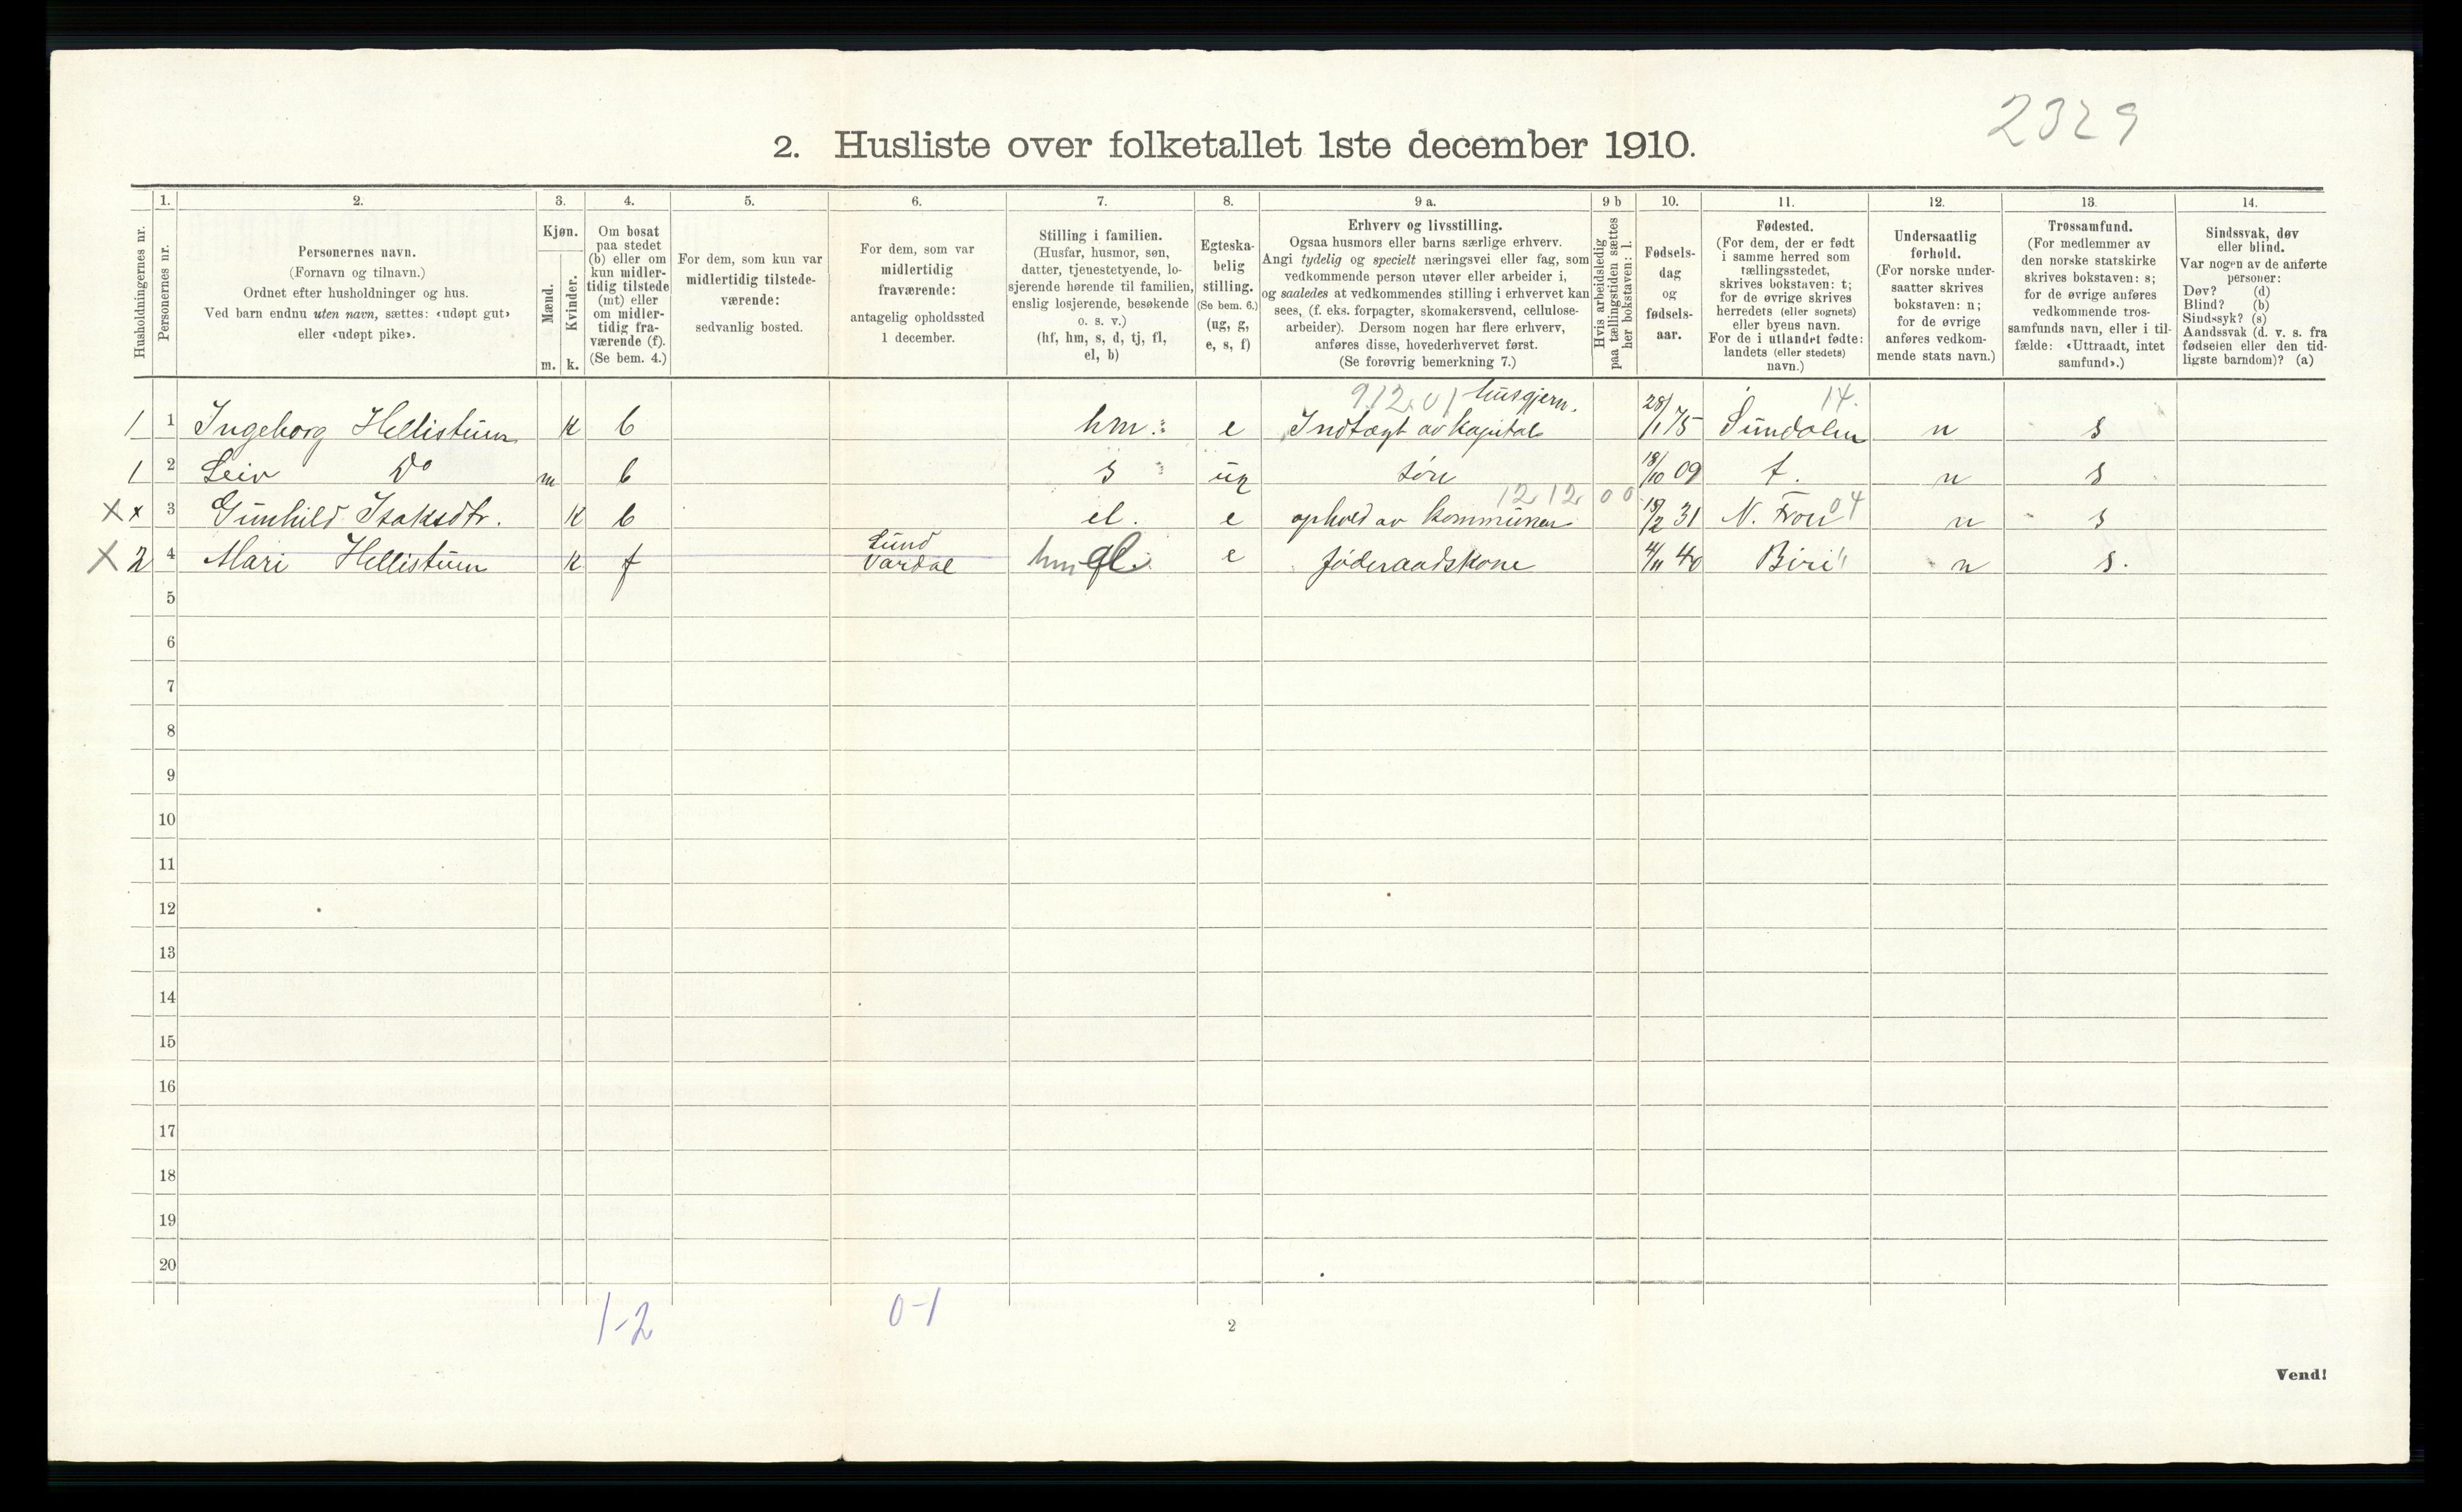 2329
2. Husliste over folketallet 1ste december 1910.
Husholdningernes nr.
1.
Personernes nr.
2.
Personernes navn.
(Fornavn og tilnavn.)
Ordnet efter husholdninger og hus.
Ved barn endnu uten navn, sættes: «udøpt gut»
eller «udøpt pike».
3.
Kjøn.
Mænd.
Kvinder.
m. k.
4.
Om bosat
paa stedet
(b) eller om
kun midler-
tidig tilstede
(mt) eller
om midler-
tidig fra-
værende (f).
(Se bem. 4.)
5.
For dem, som kun var
midlertidig tilstede-
værende:
sedvanlig bosted.
6.
For dem, som var
midlertidig
fraværende:
antagelig opholdssted
1 december.
7.
Stilling i familien.
(Husfar, husmor, søn,
datter, tjenestetyende, lo-
sjerende hørende til familien,
enslig losjerende, besøkende
o. s. v.)
(hf, hm, s, d, tj, fl,
el, b)
8.
Egteska-
belig
stilling.
(Se bem. 6.)
(ug, g,
e, s, f)
9 a.
Erhverv og livsstilling.
Ogsaa husmors eller barns særlige erhverv.
Angi tydelig og specielt næringsvei eller fag, som
vedkommende person utøver eller arbeider i,
og saaledes at vedkommendes stilling i erhvervet kan
sees, (f. eks. forpagter, skomakersvend, cellulose-
arbeider). Dersom nogen har flere erhverv,
anføres disse, hovederhvervet først.
(Se forøvrig bemerkning 7.)
9 b
Hvis arbeidsledig
paa tællingstiden sættes
her bokstaven: l.
10.
Fødsels-
dag
og
fødsels-
aar.
11.
Fødested.
(For dem, der er født
i samme herred som
tællingsstedet,
skrives bokstaven: t;
for de øvrige skrives
herredets (eller sognets)
eller byens navn.
For de i utlandet fødte:
landets (eller stedets)
navn.)
12.
Undersaatlig
forhold.
(For norske under-
saatter skrives
bokstaven: n;
for de øvrige
anføres vedkom-
mende stats navn.)
13.
Trossamfund.
(For medlemmer av
den norske statskirke
skrives bokstaven: s;
for de øvrige anføres
vedkommende tros-
samfunds navn, eller i til-
fælde: «Uttraadt, intet
samfund».)
14.
Sindssvak, døv
eller blind.
Var nogen av de anførte
personer:
Døv? (d)
Blind? (b)
Sindssyk? (s)
Aandssvak (d. v. s. fra
fødselen eller den tid-
ligste barndom)? (a)
9.12.01 husgjern. 14.
1 1 Ingeborg Hellistuen k b hm. e Indtægt av kapital 28/1 75 Sundalen n s
1 2 Leiv Do m b s ug søn 18/10 09 t. n s
12 12 00 04
X x 3 Gunhild Isaksdtr. k b el. e ophold av kommunen 19/2 31 N. Fron n s
Lund
X 2 4 Mari Hellistuen k f Vardal hm el. e føderaadskone 4/11 40 Biri n s.
5
6
7
8
9
10
11
12
13
14
15
16
17
18
19
20
1-2 0-1
2
Vend!